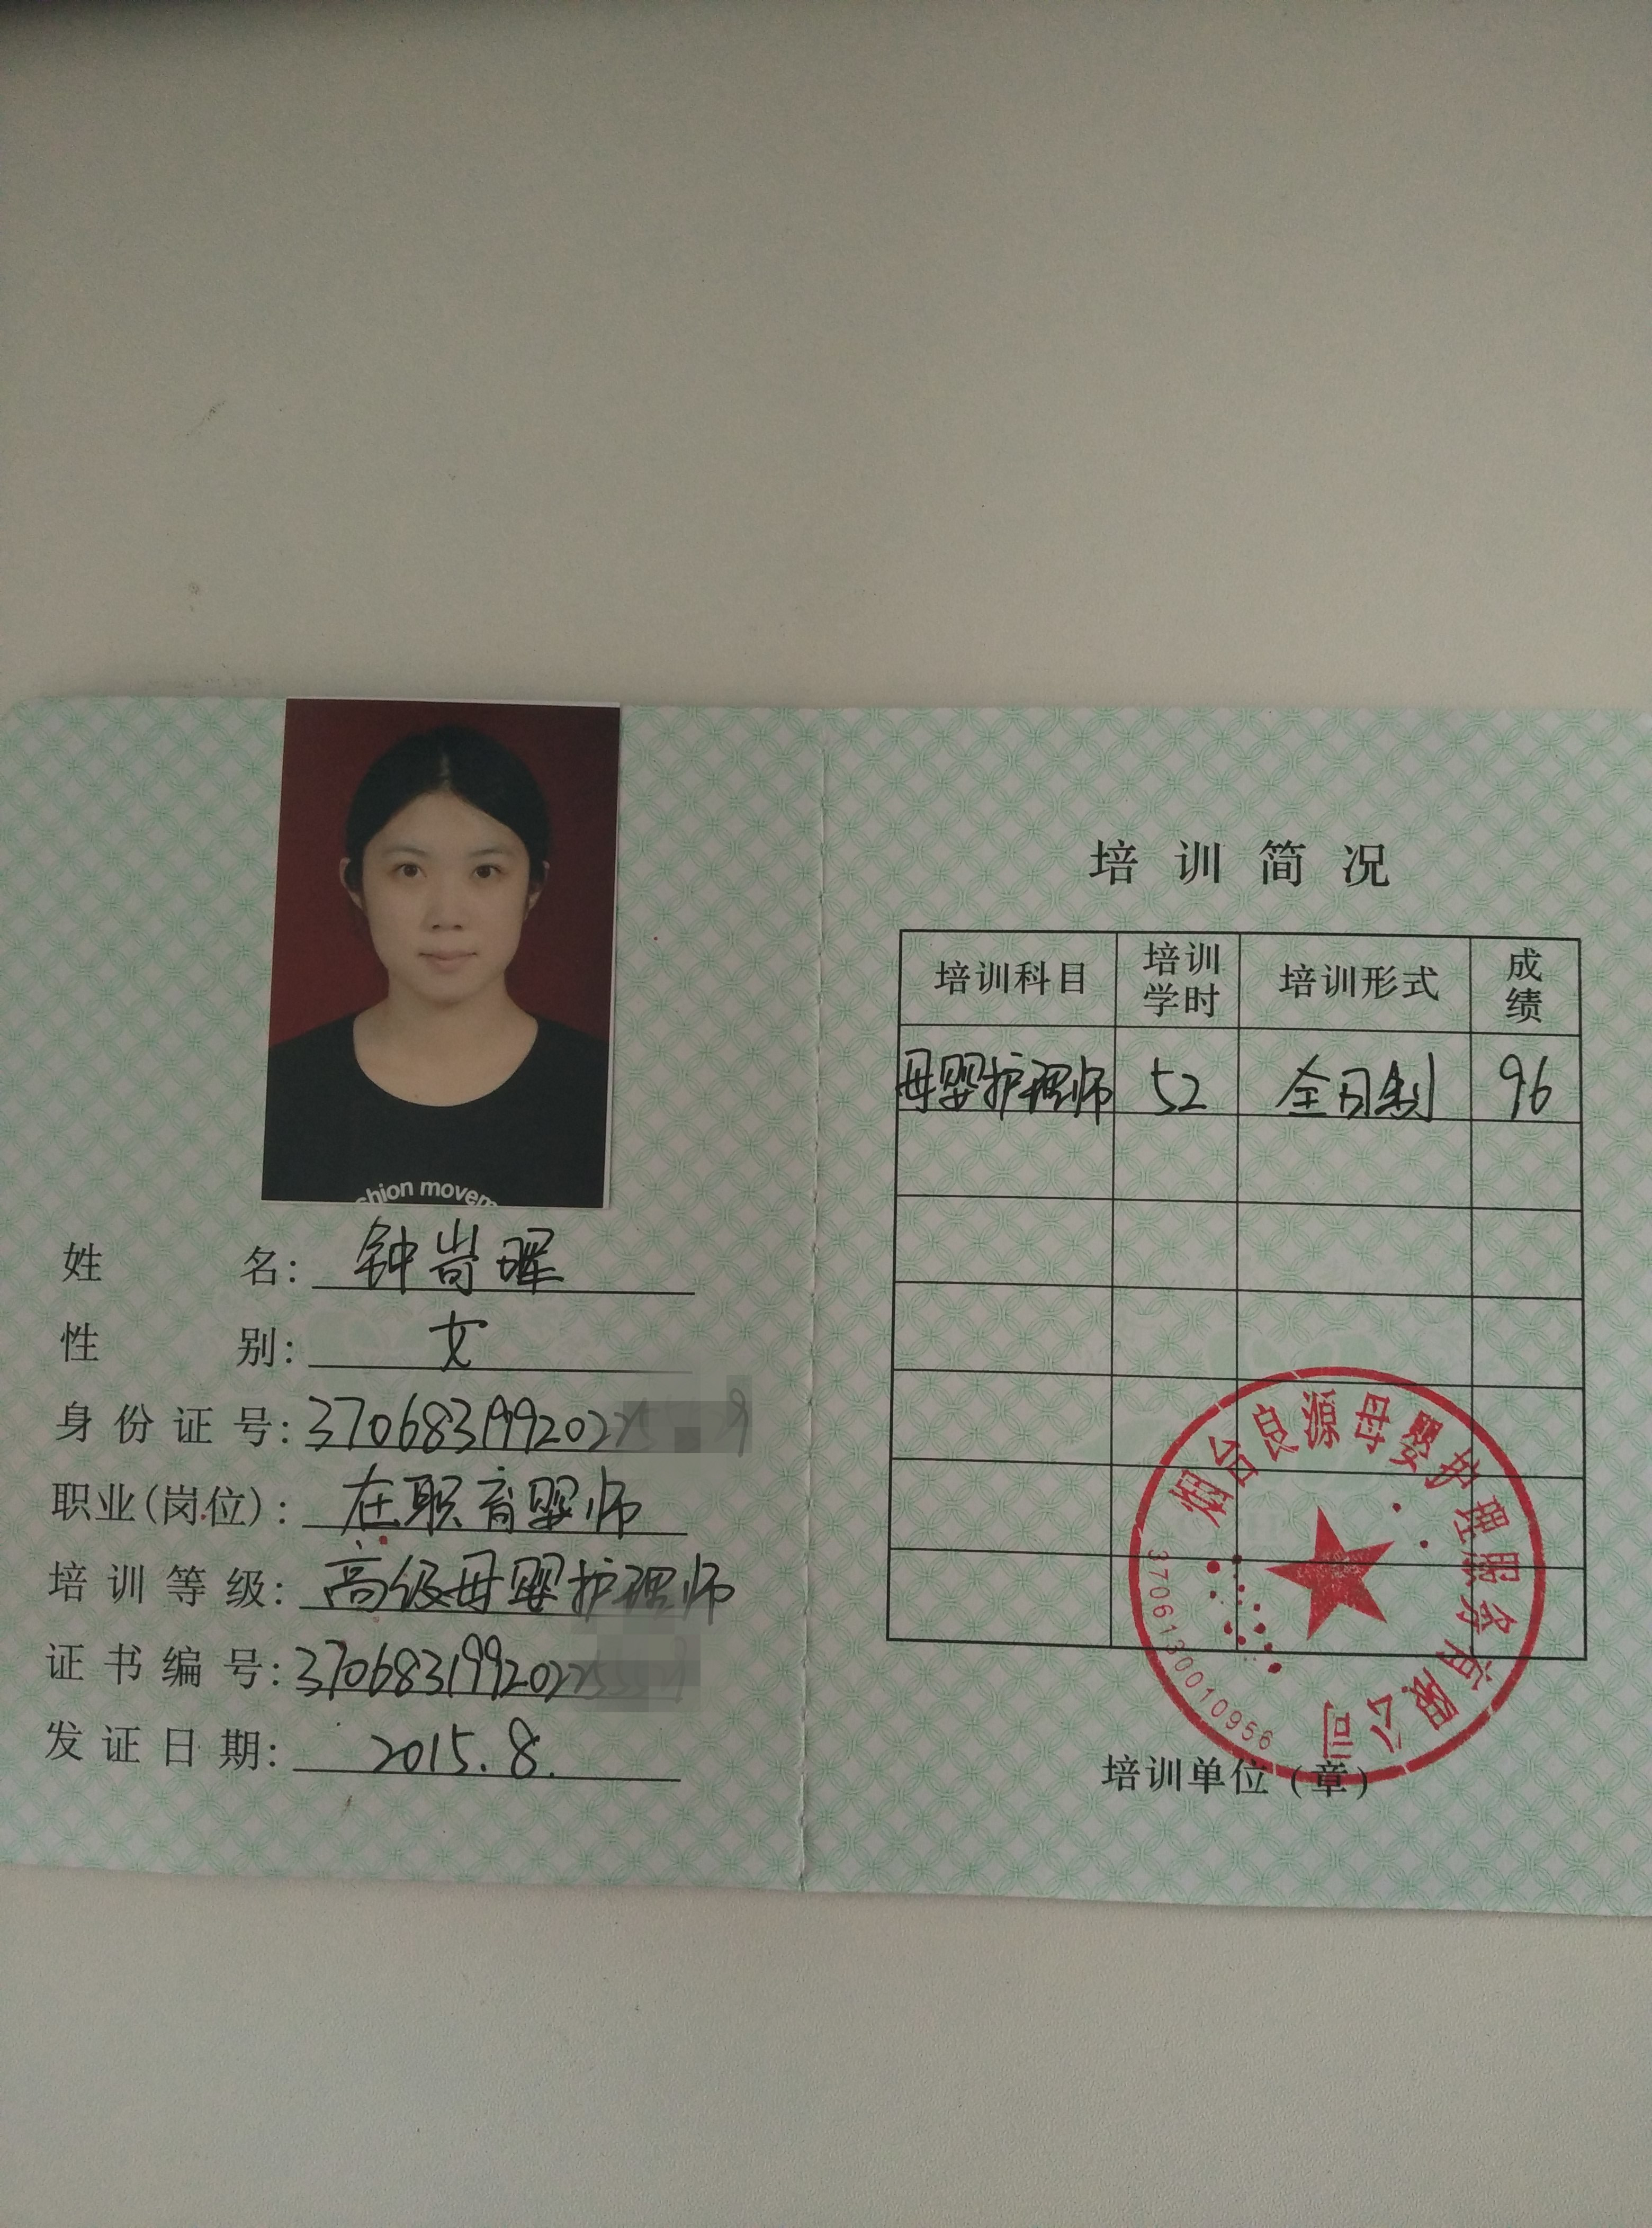 chion movem
姓名：钟岢曜
性别：女
身份证号：3706831992022
职业(岗位)：在职育婴师
培训等级：高级母婴护理师
证书编号：3706831992022
发证日期：2015.8.
培训简况
培训科目 培训学时 培训形式 成绩
母婴护理师 52 全日制 96
烟台良源母婴护理服务有限公司
3706130010956
培训单位(章)